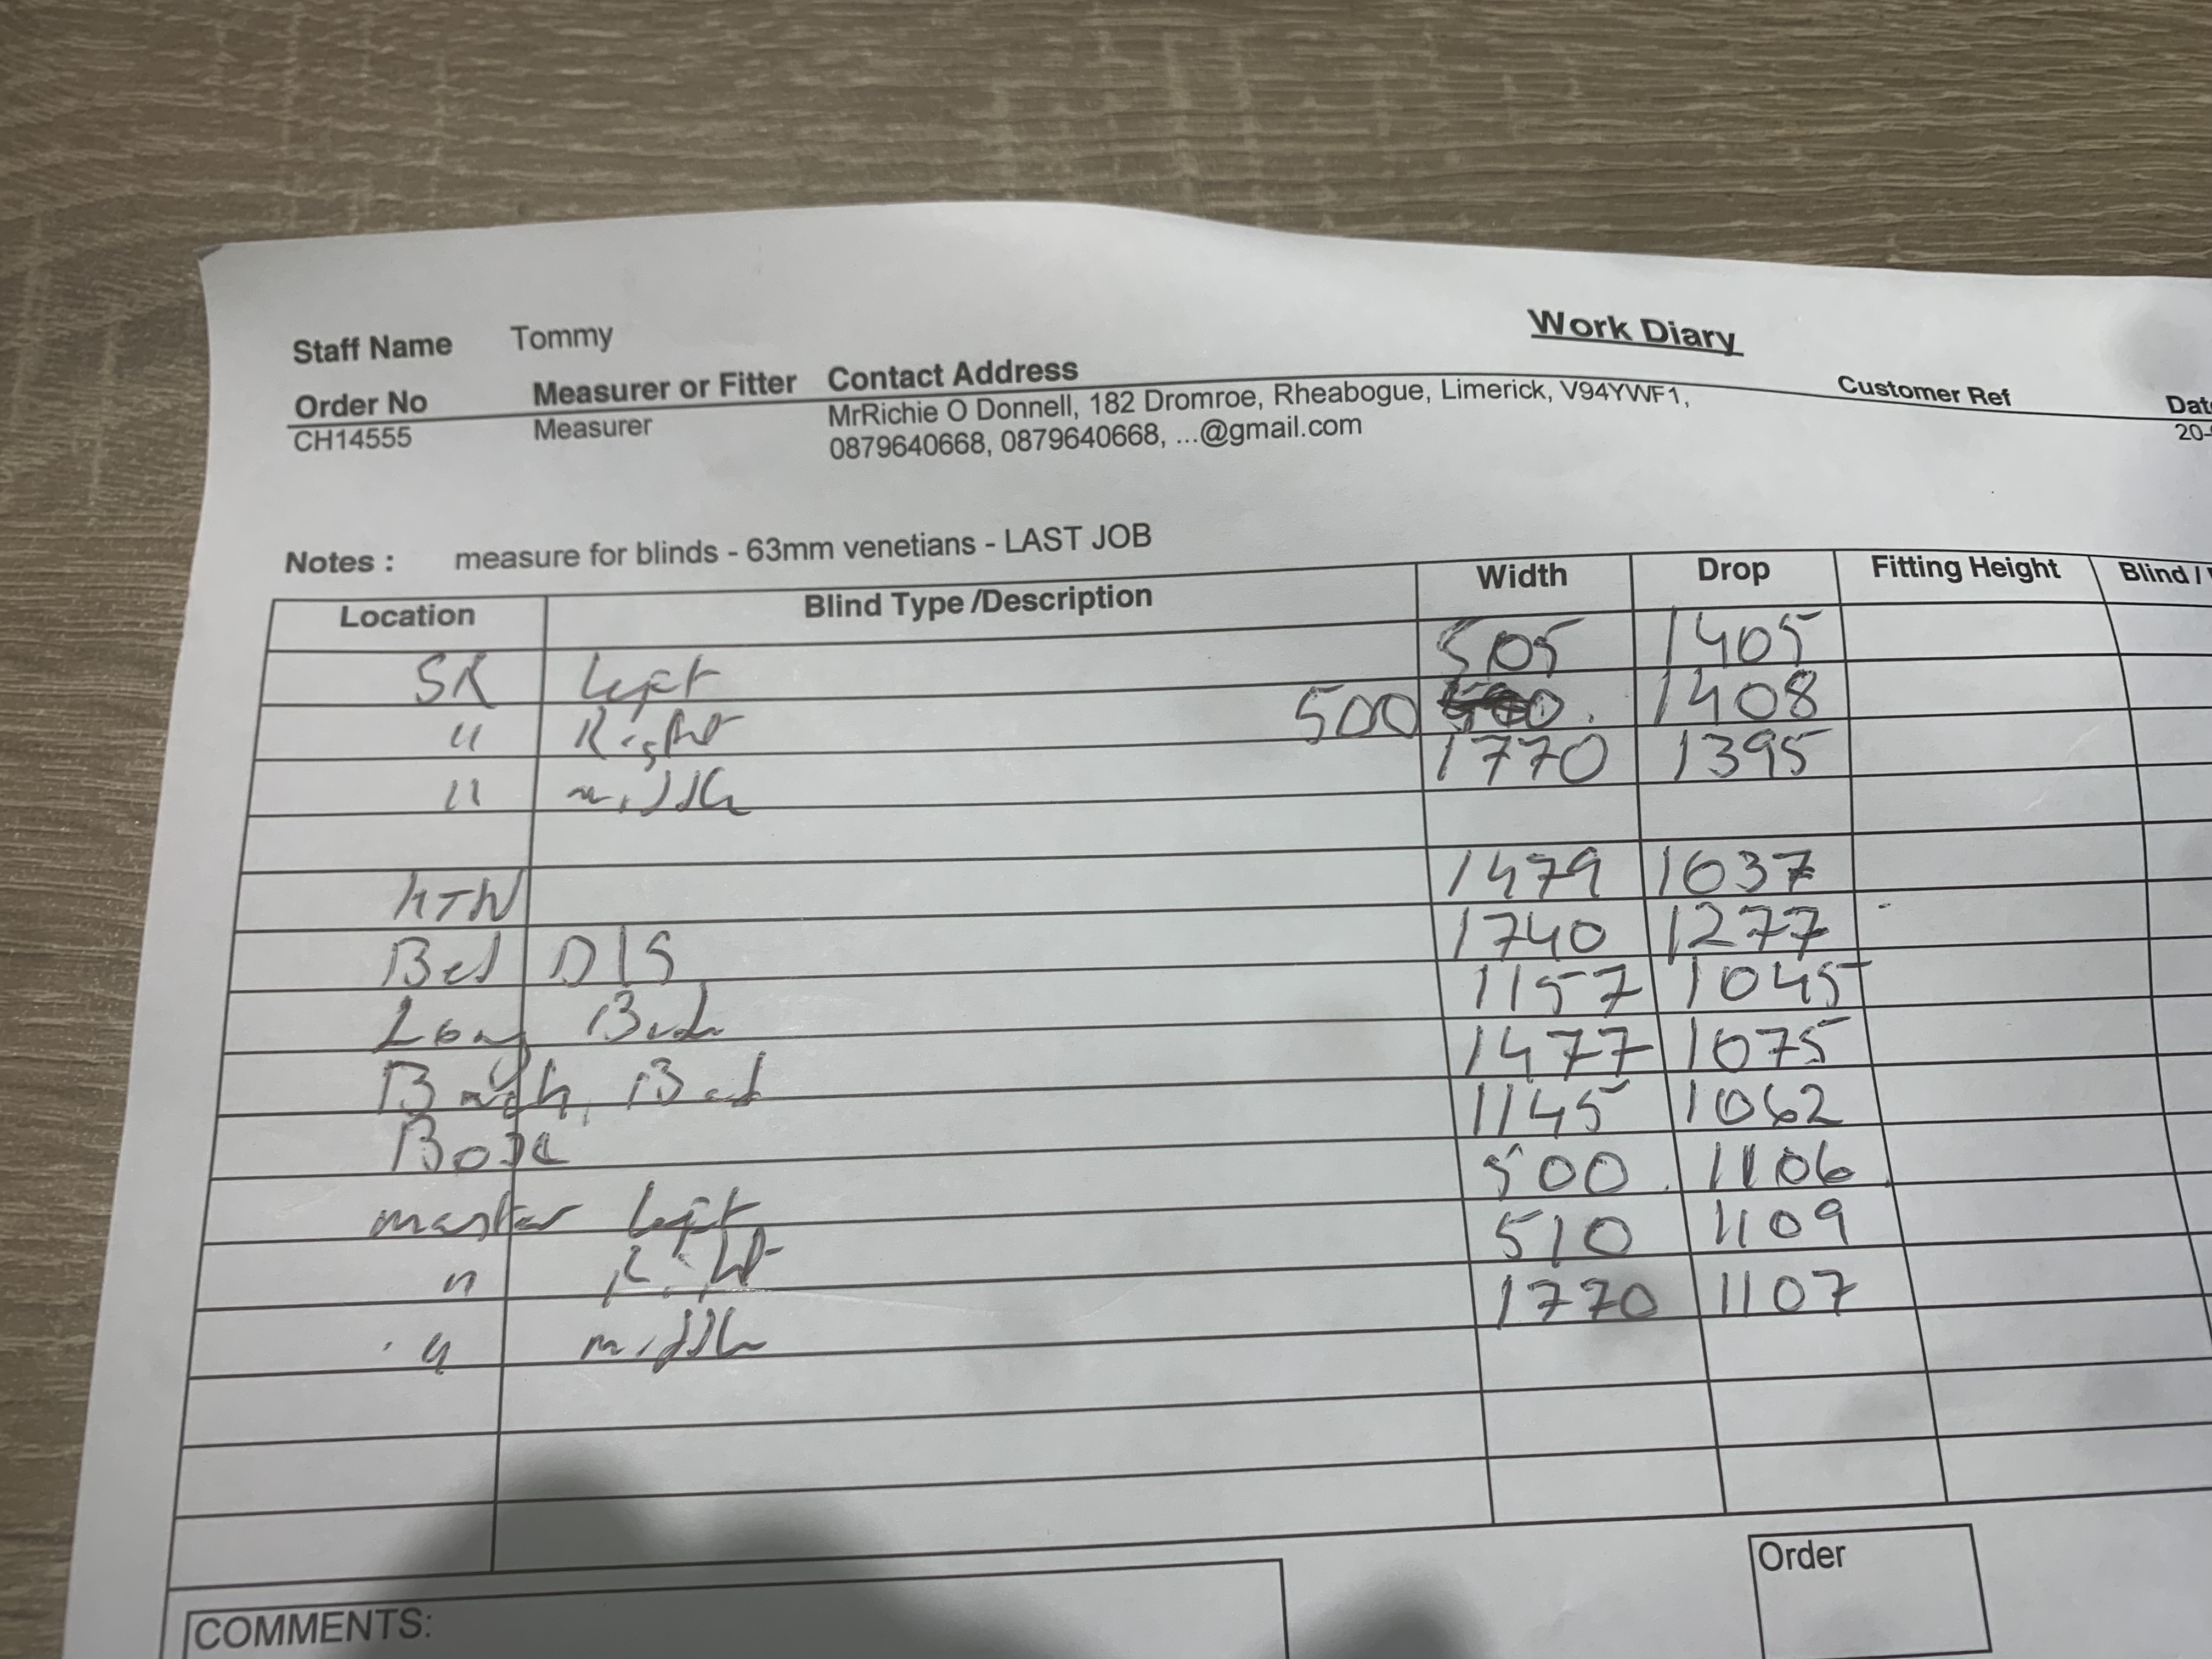 Work Diary
Staff Name Tommy
Order No Measurer or Fitter Contact Address Customer Ref
CH14555 Measurer MrRichie O Donnell, 182 Dromroe, Rheabogue, Limerick, V94YWF1,
0879640668, 0879640668, ...@gmail.com
20-
Notes : measure for blinds - 63mm venetians - LAST JOB
Location Blind Type /Description Width Drop Fitting Height Blind /
SR Left 505 1405
" Right 500 1408
" middle 1770 1395
1479 1037
Bed D/S 1740 1277
Long Bed 1157 1045
Bed 1477 1075
1145 1062
master left 500 1106
" Right 510 1109
" middle 1770 1107
Order
COMMENTS: